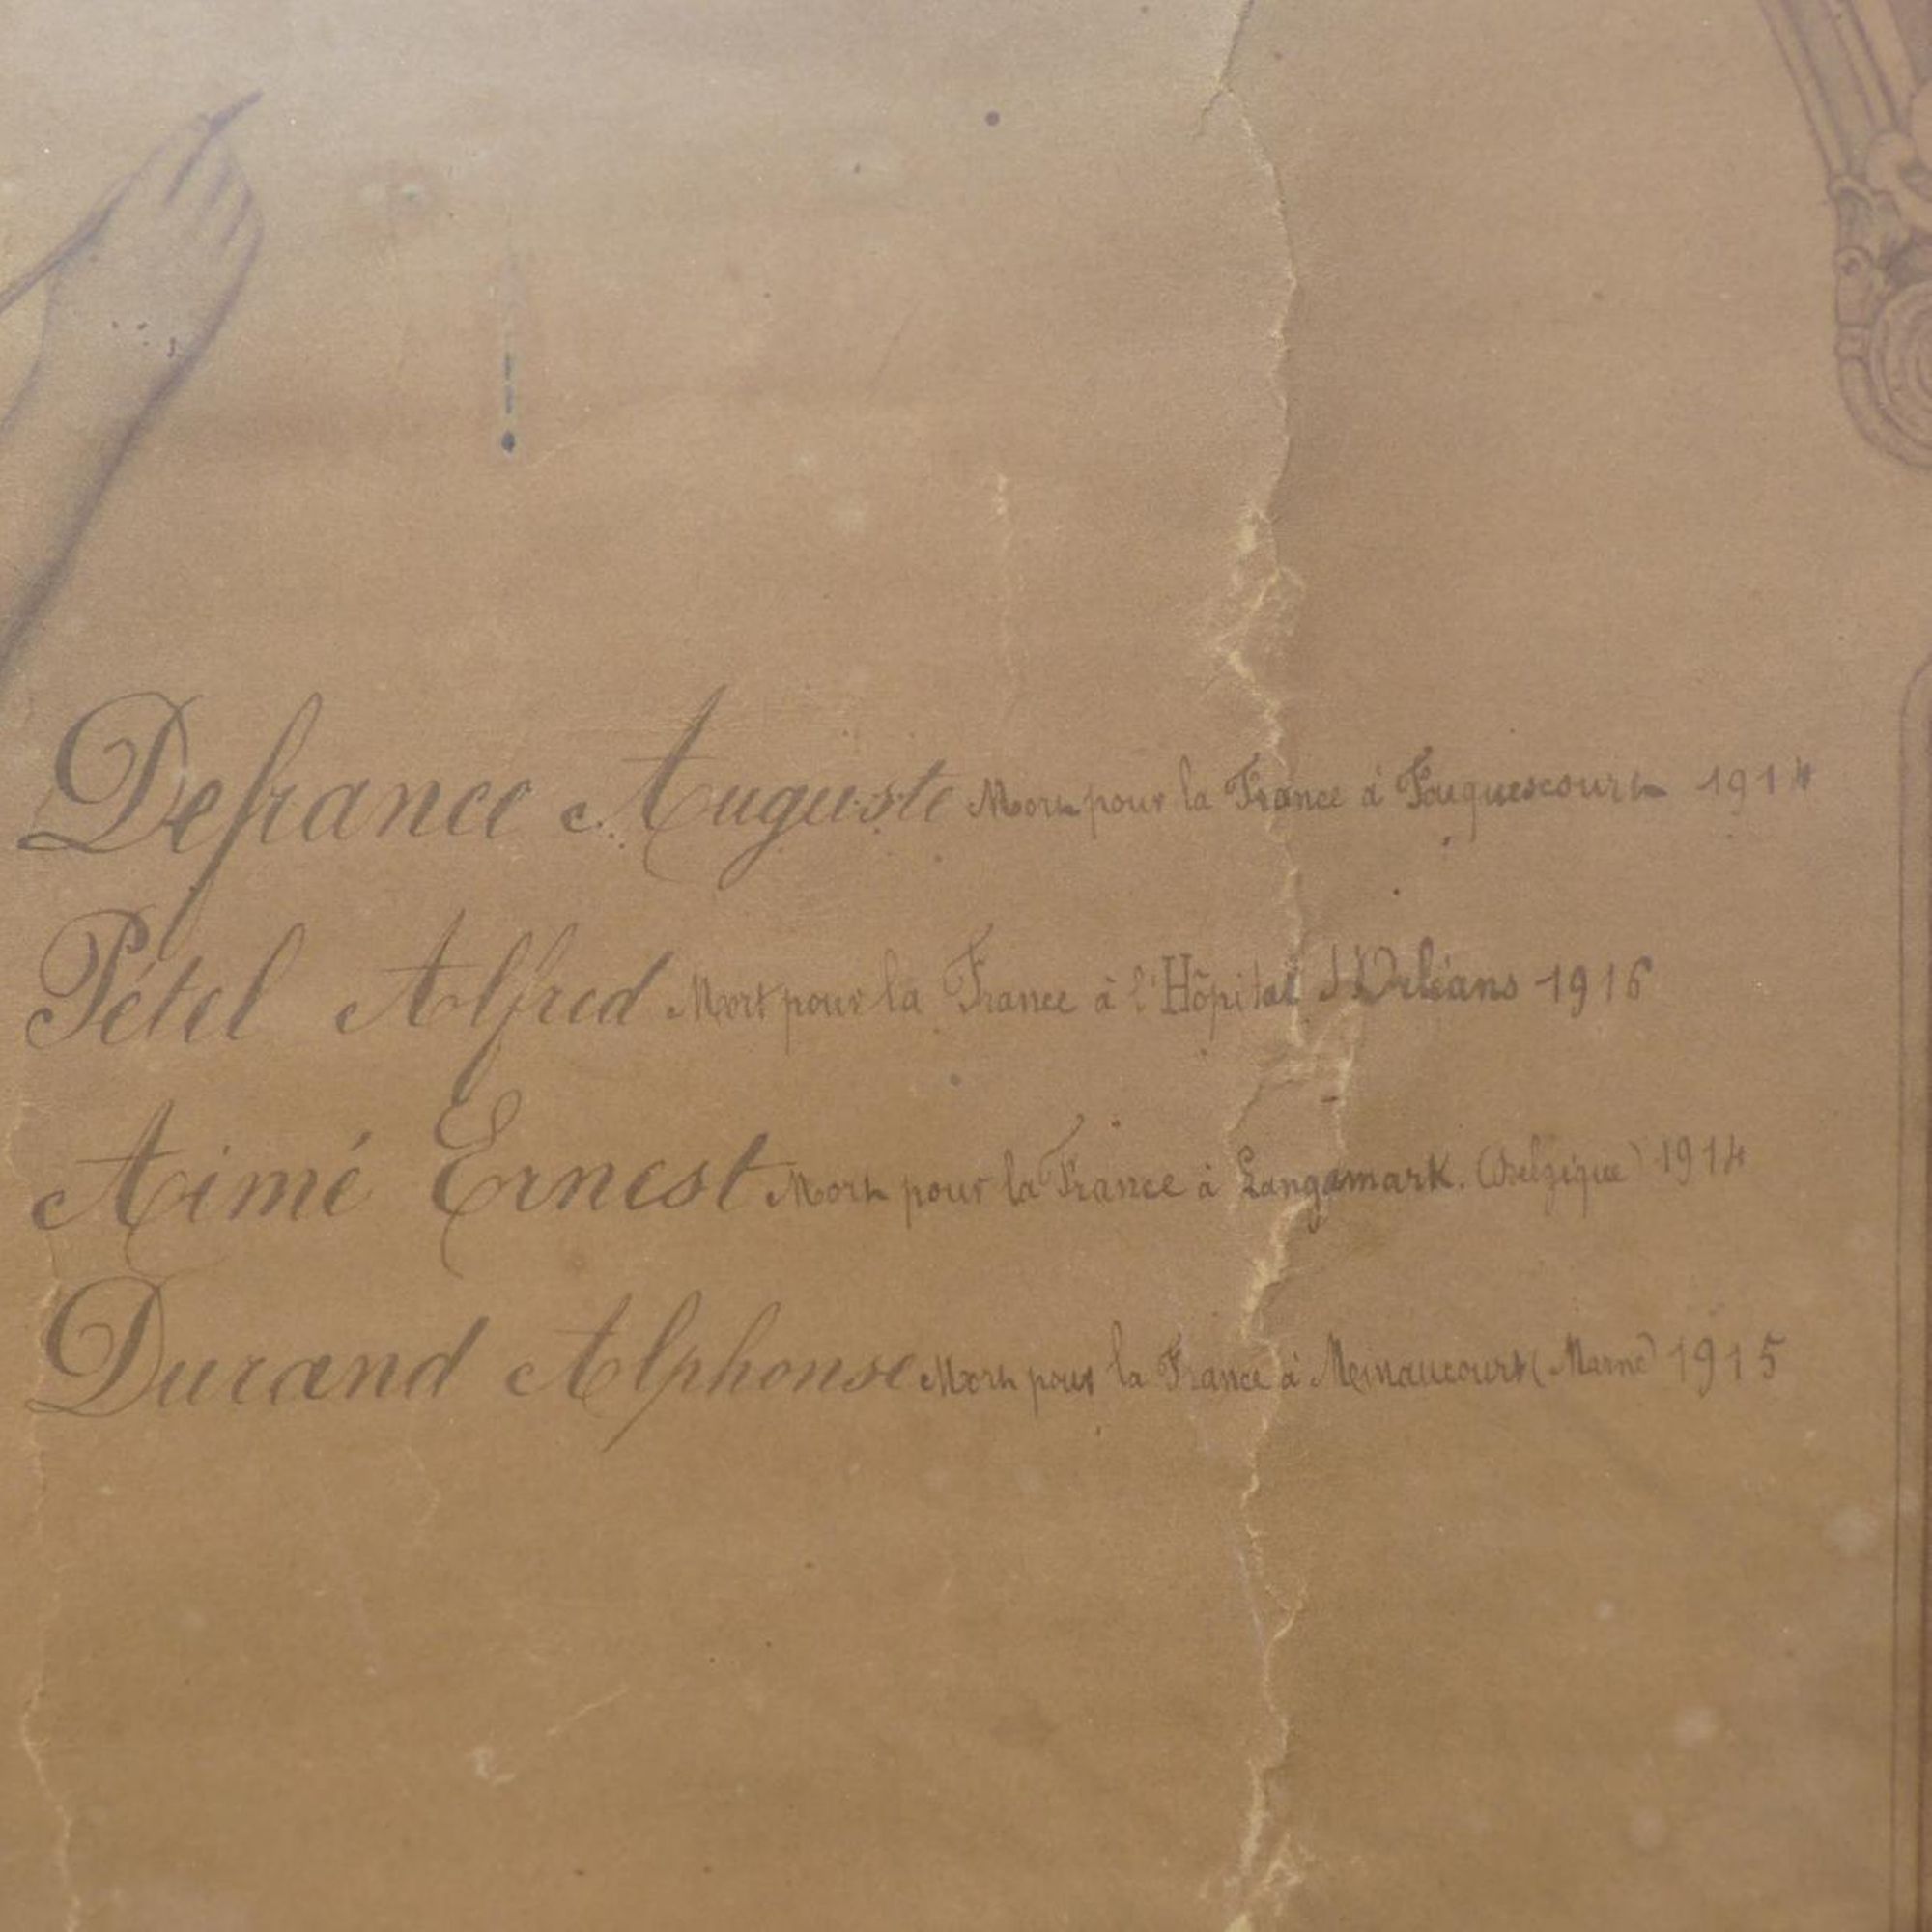 Defrance Auguste Mort pour la France à Fouquescourt 1914
Pétel Alfred Mort pour la France à l'Hôpital d'Orléans 1916
Aimé Ernest Mort pour la France à Langamark. (Belgique) 1914
Durand Alphonse Mort pour la France à Meinaucourt (Marne) 1915